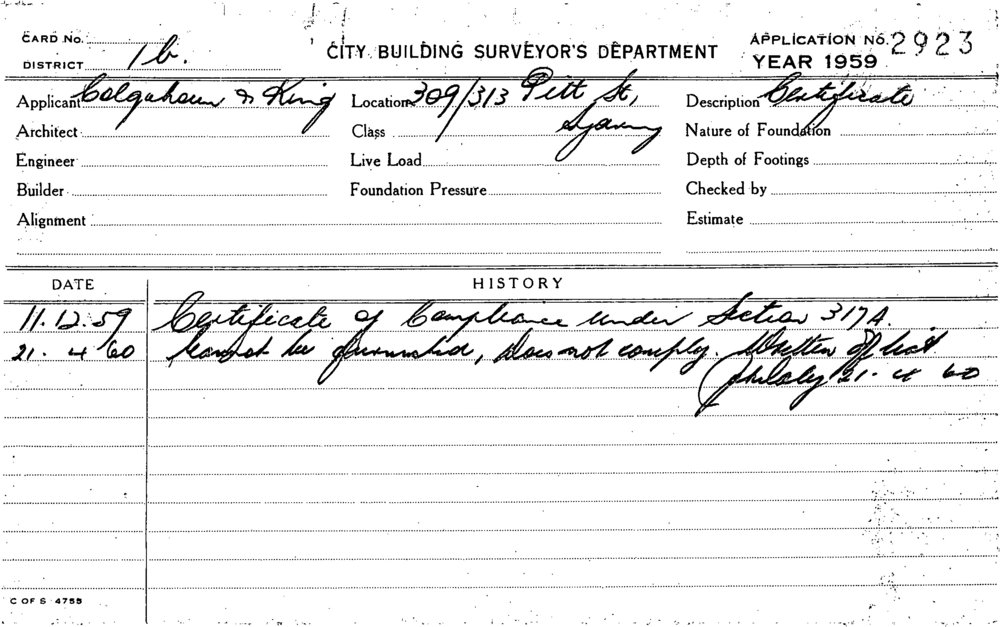 CARD No.
DISTRICT 1b.
CITY BUILDING SURVEYOR'S DEPARTMENT
APPLICATION No. 2923
YEAR 1959
Applicant Colquhoun & King
Location 309/313 Pitt St,
Sydney
Description Certificate
Architect
Class
Nature of Foundation
Engineer
Live Load
Depth of Footings
Builder
Foundation Pressure
Checked by
Alignment
Estimate
DATE HISTORY
11.12.59 Certificate of Compliance under Section 317A.
21. 4 60 Cannot be furnished, Does not comply. Written off list
21. 4 60
C OF S 4755